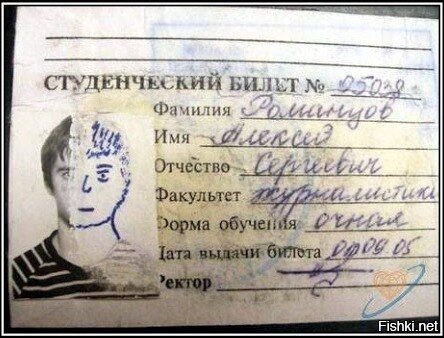 СТУДЕНЧЕСКИЙ БИЛЕТ № 25038
Фамилия Романцов
Имя Алексей
Отчество Сергеевич
Факультет журналистики
Форма обучения очная
Дата выдачи билета 01 09 05
Ректор
Fishki.net